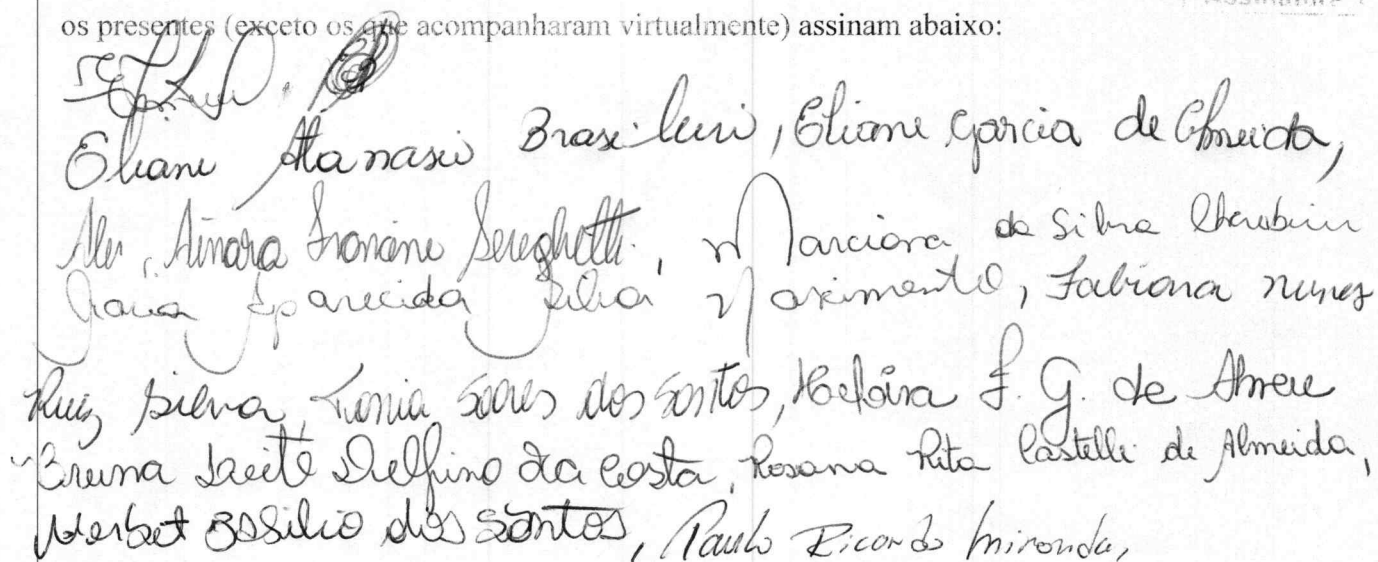 os presentes (exceto os que acompanharam virtualmente) assinam abaixo:
Eliane Atanasio Brasileiro, Eliane Garcia de Almeida,
Ainara Franciane Sereghetti, Marciana da Silva Cherubim
Aparecida Silva Nascimento, Fabiana Nunes
Ruiz Silva, Tania Soares dos Santos, Heloisa F. G. de Abreu
Bruna Leite Delfino da Costa, Rosana Rita Castelli de Almeida,
Herbet Basilio dos Santos, Paulo Ricardo Miranda,